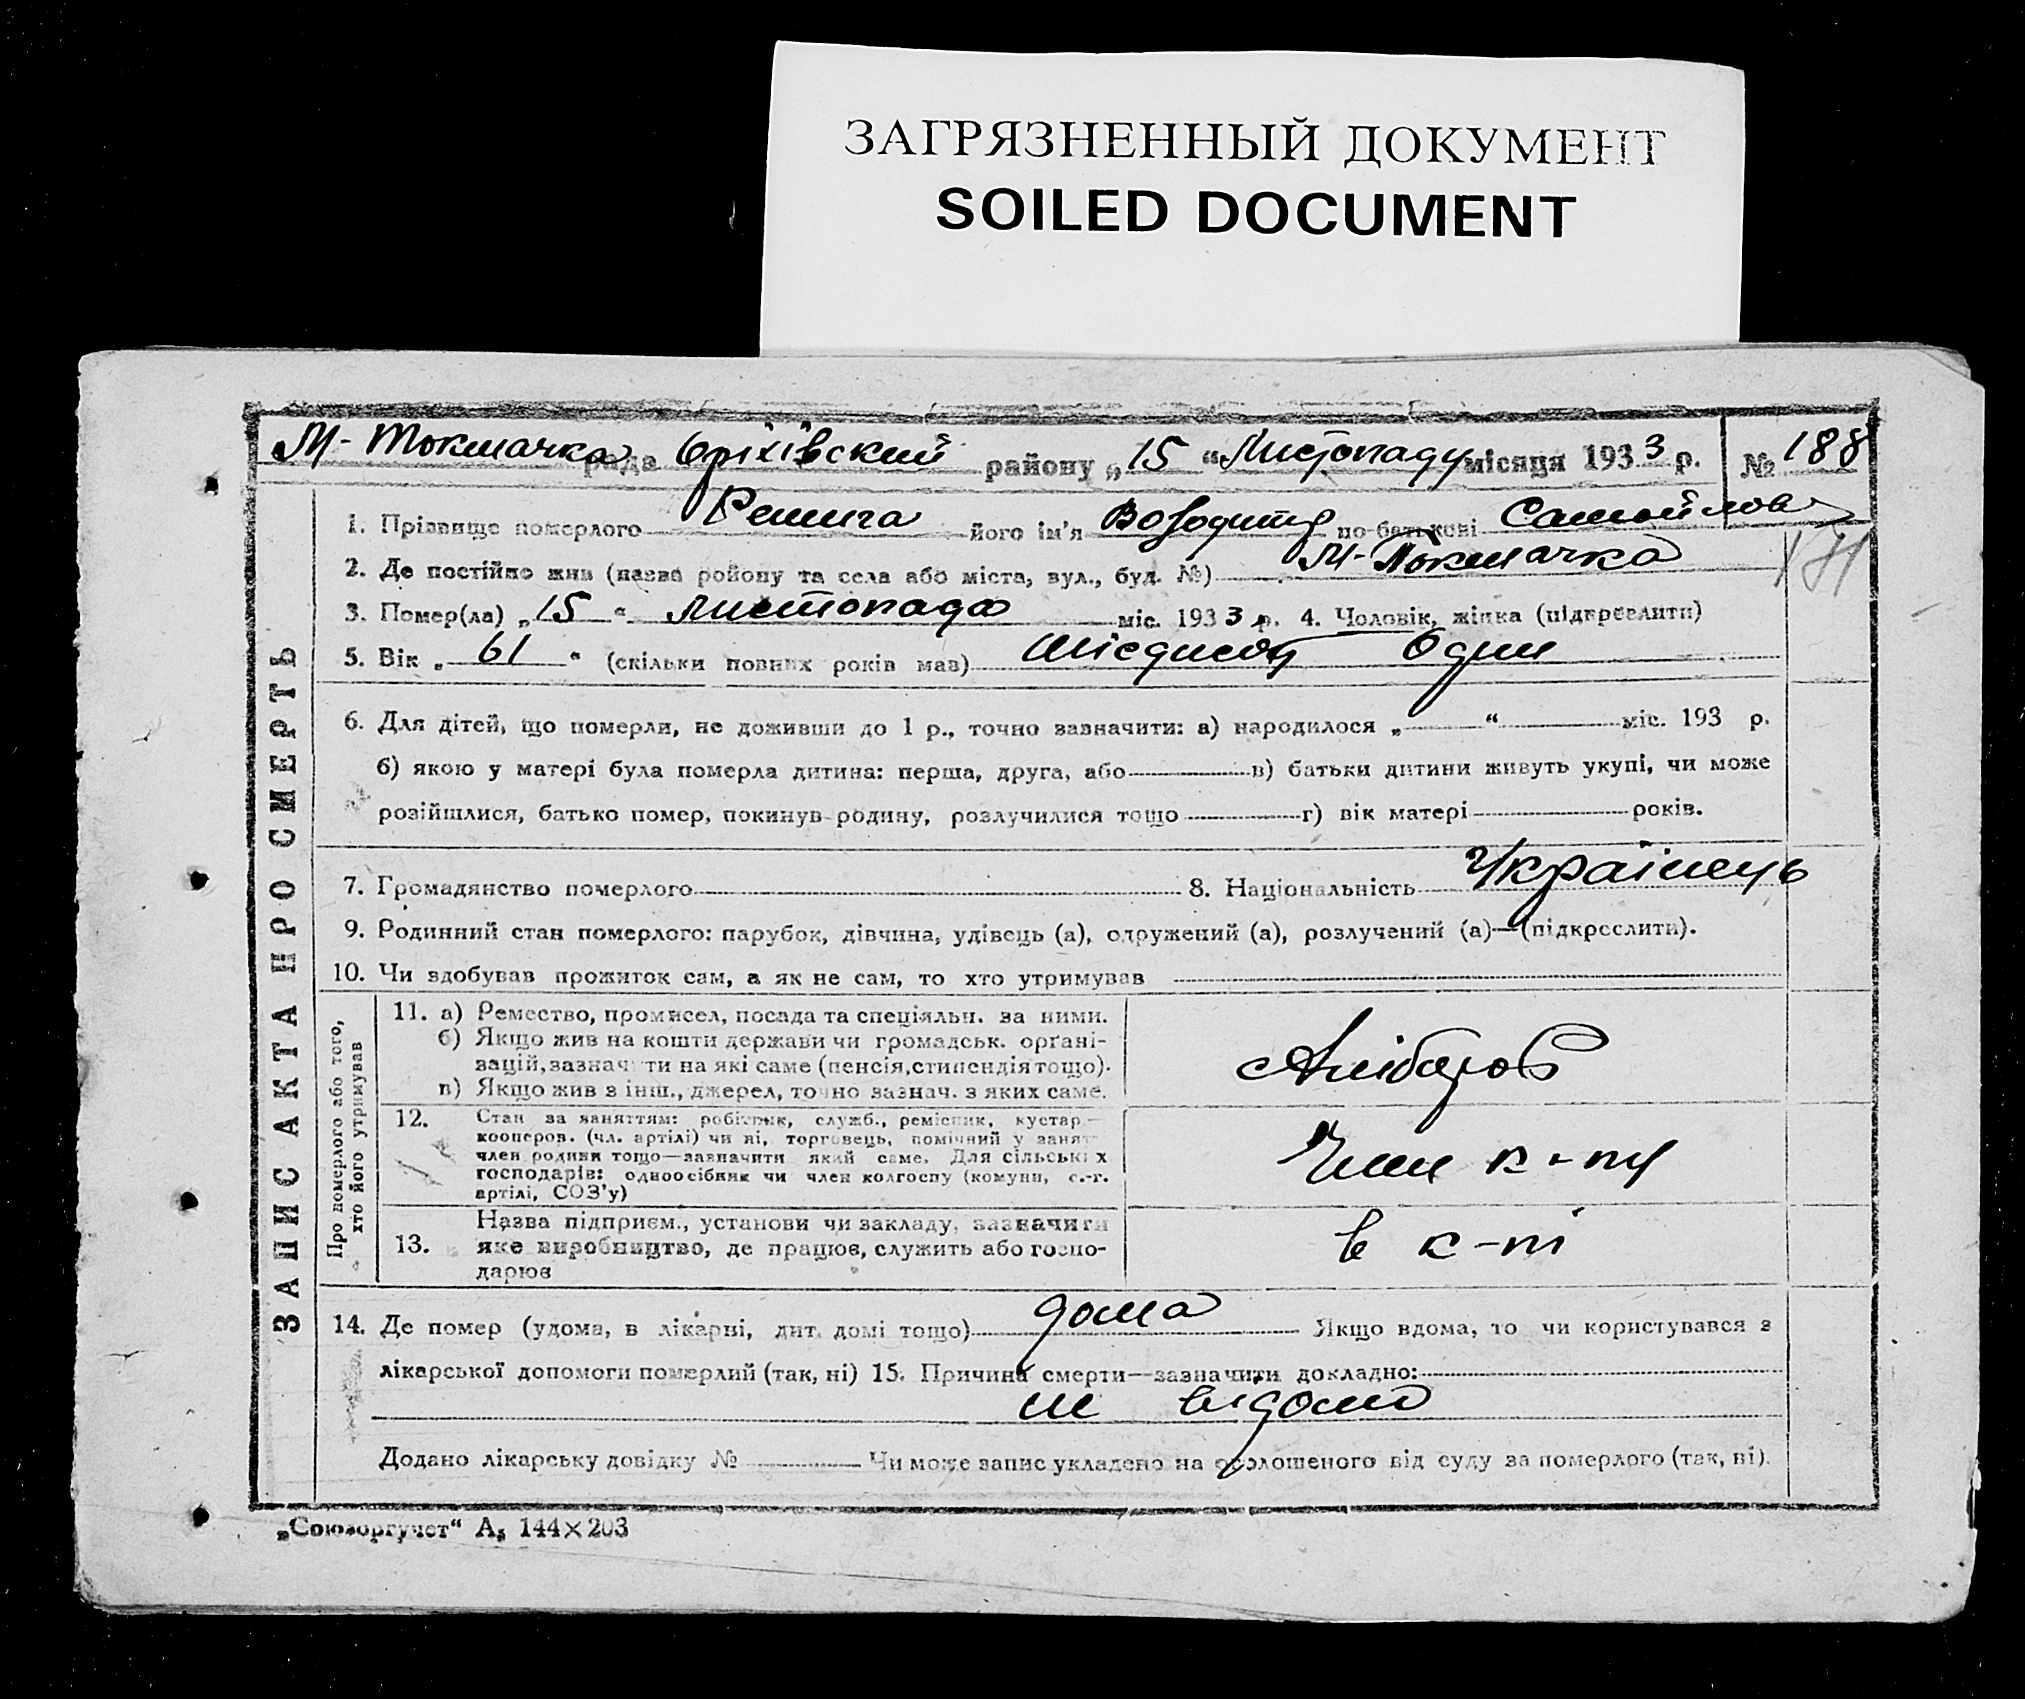 ЗАГРЯЗНЕННЫЙ ДОКУМЕНТ
SOILED DOCUMENT
М-Токмачка рада Оріхівский району „15“ Листопаду місяця 1933 р. № 188
1. Прізвище померлого його ім'я по-батькові Самойлов
2. Де постійно жив (назва району та села або міста, вул., буд. №) М-Токмачка
3. Помер(ла) „15“ листопада міс. 1933 р. 4. Чоловік, жінка (підкреслити)
5. Вік „61“ (скільки повних років мав) Шісдисят Один
6. Для дітей, що померли, не доживши до 1 р., точно зазначити: а) народилося „ “ міс. 193 р.
б) якою у матері була померла дитина: перша, друга, або в) батьки дитини живуть укупі, чи може
розійшлися, батько помер, покинув родину, розлучилися тощо г) вік матері років.
7. Громадянство померлого 8. Національність Українець
9. Родинний стан померлого: парубок, дівчина, удівець (а), одружений (а), розлучений (а)—(підкреслити).
10. Чи здобував прожиток сам, а як не сам, то хто утримував
ЗАПИС АКТА ПРО СМЕРТЬ
Про померлого або того,
хто його утримував
11. а) Ремество, промисел, посада та спеціяльн. за ними.
б) Якщо жив на кошти держави чи громадськ. органі-
зацій, зазначити на які саме (пенсія, стипендія тощо).
в) Якщо жив з інш., джерел, точно зазнач. з яких саме.
12. Стан за заняттям: робітник, служб., ремісник, кустар—
кооперов. (чл. артілі) чи ні, торговець, помічний у занят-
член родини тощо—зазначити який саме. Для сільських
господарів: одноосібник чи член колгоспу (комуни, с.-г.
артілі, СОЗ'у)
Член к-пу
Назва підприєм., установи чи закладу, зазначити
13. яке виробництво, де працює, служить або госпо-
дарює
в к-пі
14. Де помер (удома, в лікарні, дит. домі тощо) дома Якщо вдома, то чи користувався з
лікарської допомоги померлий (так, ні) 15. Причина смерти—зазначити докладно:
не відомо
Додано лікарську довідку № Чи може запис укладено на оголошеного від суду за померлого (так, ні).
„Союзоргучет“ А₅ 144×203